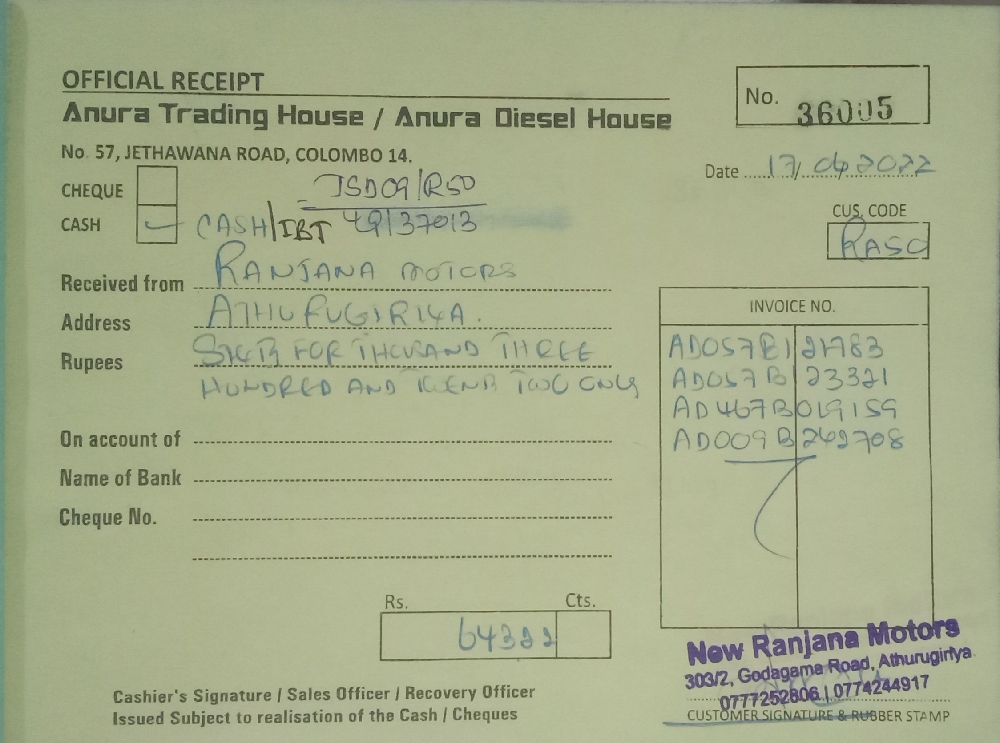 OFFICIAL RECEIPT
Anura Trading House / Anura Diesel House
No. 36005
No. 57, JETHAWANA ROAD, COLOMBO 14.
Date 17/04/2022
CHEQUE
JSD09/R50
CASH CASH/IBT 49137013
CUS. CODE
RASC
Received from RANJANA MOTORS
Address ATHURUGIRIYA.
Rupees SIXTY FOR THOUSAND THREE
HUNDRED AND TWENTY TWO ONLY
INVOICE NO.
AD057B 21783
AD057B 23321
AD467B 019159
AD009B 242708
On account of
Name of Bank
Cheque No.
Rs. Cts.
64322
New Ranjana Motors
303/2, Godagama Road, Athurugiriya.
0777252806 | 0774244917
CUSTOMER SIGNATURE & RUBBER STAMP
Cashier's Signature / Sales Officer / Recovery Officer
Issued Subject to realisation of the Cash / Cheques